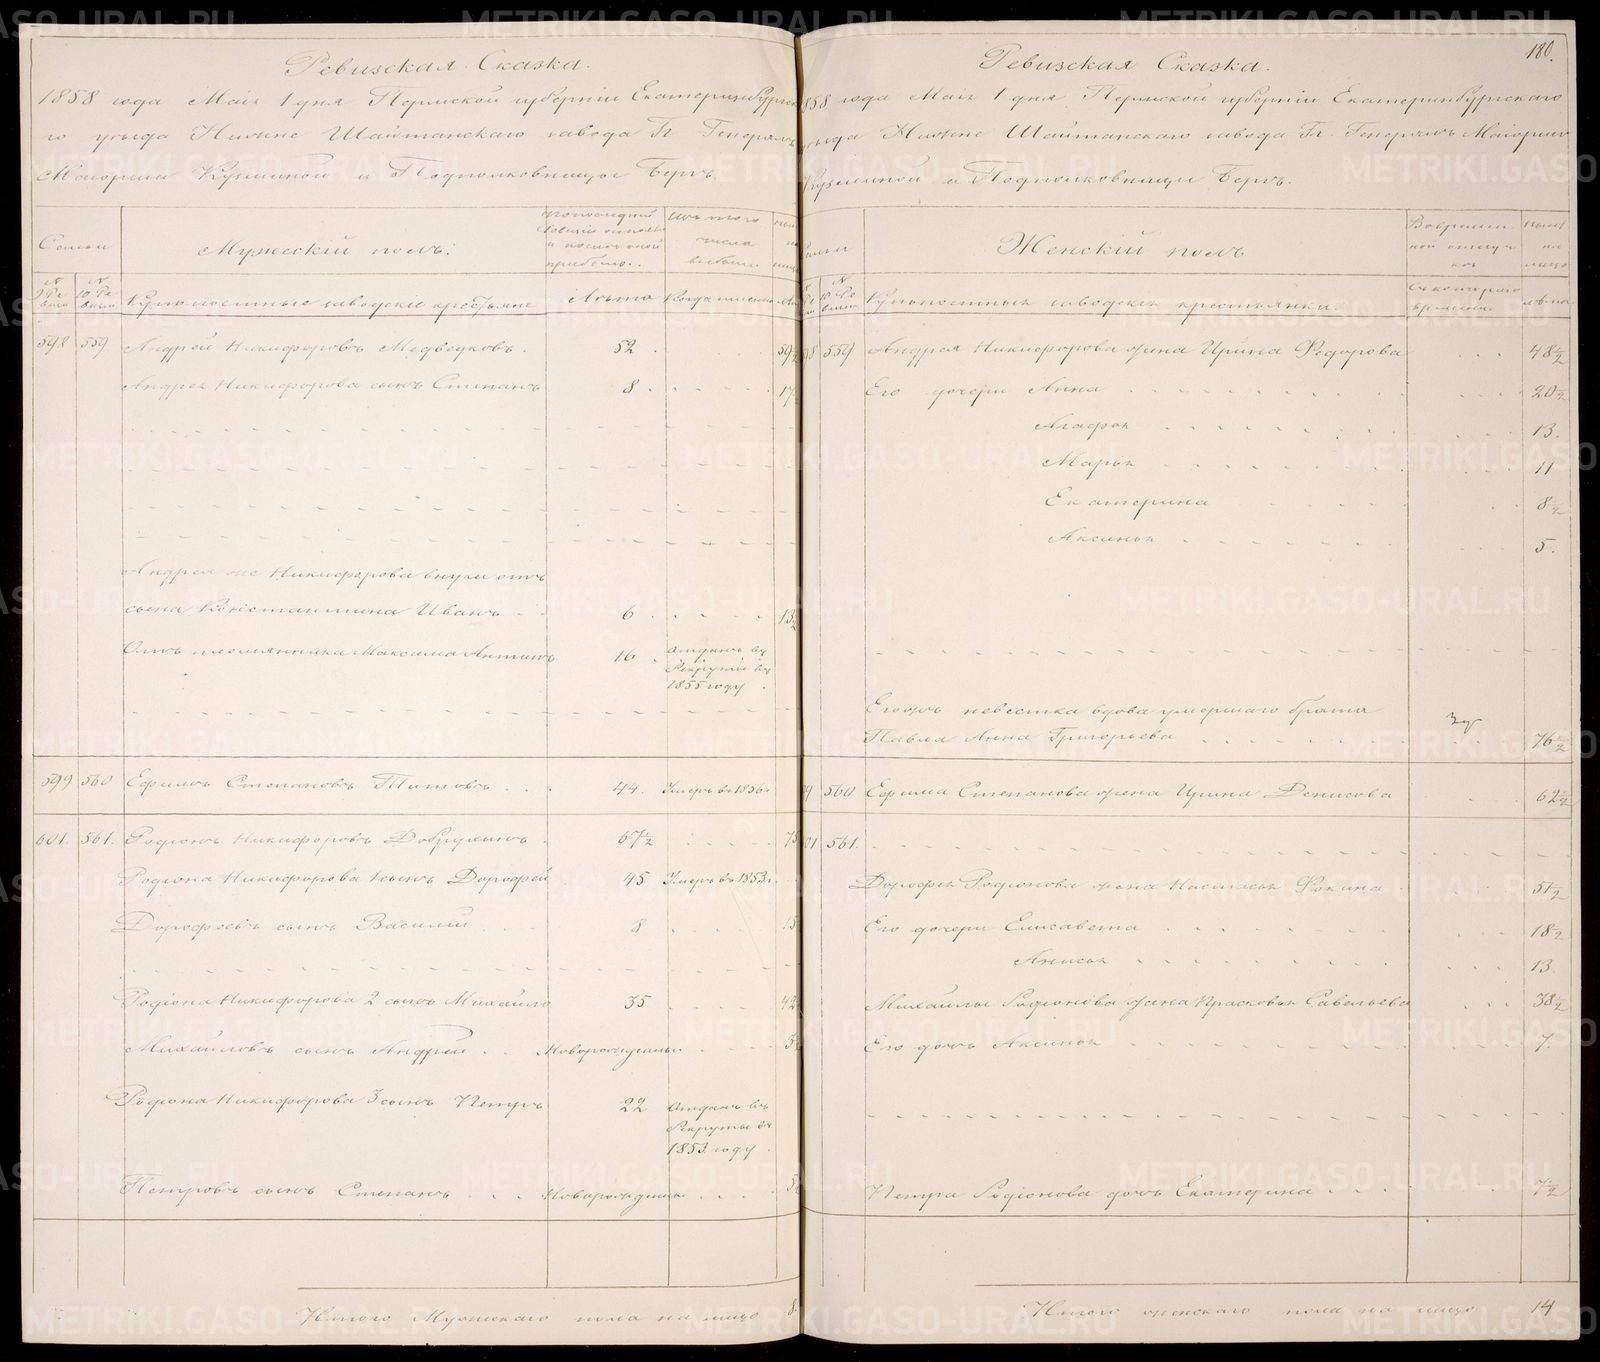 Ревизская Сказка.
1858 года Маія 1 дня Пермской губерніи Екатеринбургска
го уезда Нижне Шайтанскаго завода Гг. Генералъ
Маіорши Кузминой и Подполковницы Бергъ
Семьи
Мужескій полъ.
Изъ того числа выбыло.
№ 9 Ревизіи
№ 10 Ревизіи
Крепостные заводскіе крестьяне
Лета
Когда именно
598 559 Андрей Никифоровъ Медведковъ. 52 59½
Андрея Никифорова сынъ Степанъ 8 17
Андрея же Никифорова внуки отъ
сына Константина Иванъ 6 13½
Отъ племянника Максима Антипъ 16 Отданъ въ
Рекруты въ
1855 году
599 560 Ефимъ Степановъ Титовъ 44. Умеръ въ 1856.
601. 561. Родіонъ Никифоровъ Добрухинъ 67½ 75
Родіона Никифорова 1 сынъ Дорофей 45 Умеръ въ 1853 г.
Дорофеевъ сынъ Василій 8 15
Родіона Никифорова 2 сынъ Михайло 35 42
Михайловъ сынъ Андрей Новорожденный
Родіона Никифорова 3 сынъ Петръ 22 Отданъ въ
Рекруты въ
1853 году
Петровъ сынъ Степанъ Новорожденный
Итого Мужескаго пола на лицо 8.
180.
Ревизская Сказка.
858 года Маія 1 дня Пермской губерніи Екатеринбургскаго
уезда Нижне Шайтанскаго завода Гг. Генералъ Маіорши
Кузминой и Подполковницы Бергъ.
Женскій полъ
Во временной отлучке
ныне на лицо
№ 10 Ревизіи
Крепостныя заводскія крестьянки.
Съ котораго времени.
лета
98 559 Андрея Никифорова жена Ирина Федорова 48½
Его дочери Анна 20½
Агафья 13.
Марья 11
Екатерина 8½
Аксинья 5.
Его жъ невестка вдова умершаго брата
Павла Анна Григорьева 76½
9 560 Ефима Степанова жена Ирина Денисова 62½
01 561.
Дорофея Родіонова жена Настасья Фокина 51½
Его дочери Елисавета 18½
Анисья 13.
Михайлы Родіонова жена Прасковья Савельева 38½
Его дочь Аксинья 7.
Петра Родіонова дочь Екатерина 7½
Итого женскаго пола на лицо 14
METRIKI.GASO-URAL.RU